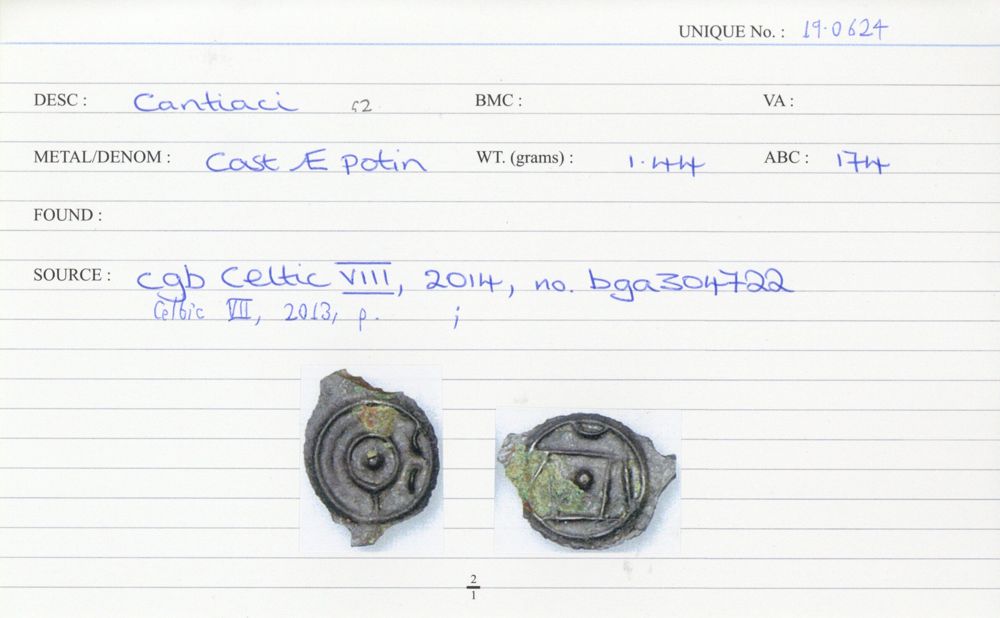 UNIQUE No. : 19.0624
DESC : Cantiaci 52 BMC : VA :
METAL/DENOM : Cast Æ potin WT. (grams) : 1.44 ABC : 174
FOUND :
SOURCE : cgb Celtic VIII, 2014, no. bga304722
Celtic VII, 2013, p. ;
2
1